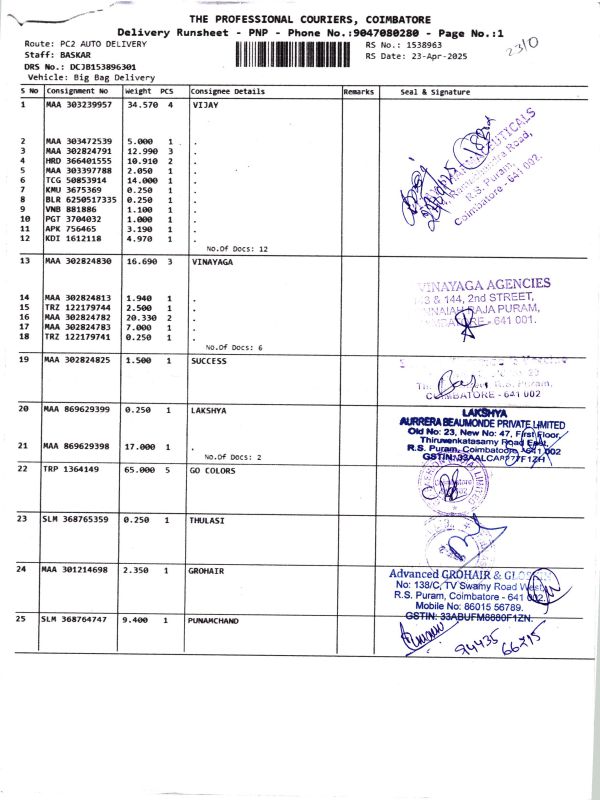 THE PROFESSIONAL COURIERS, COIMBATORE
Delivery Runsheet - PNP - Phone No.:9047080280 - Page No.:1
Route: PC2 AUTO DELIVERY RS No.: 1538963
Staff: BASKAR RS Date: 23-Apr-2025
DRS No.: DCJB153896301
Vehicle: Big Bag Delivery
S No Consignment No Weight PCS Consignee Details Remarks Seal & Signature
1 MAA 303239957 34.570 4 VIJAY
2 MAA 303472539 5.000 1 .
3 MAA 302824791 12.990 3 .
4 HRD 366401555 10.910 2 .
5 MAA 303397788 2.050 1 .
6 TCG 50853914 14.000 1 .
7 KMU 3675369 0.250 1 .
8 BLR 6250517335 0.250 1 .
9 VNB 881886 1.100 1 .
10 PGT 3704032 1.000 1 .
11 APK 756465 3.190 1 .
12 KDI 1612118 4.970 1 .
No.Of Docs: 12
R.S. Puram,
Coimbatore - 641 002.
13 MAA 302824830 16.690 3 VINAYAGA
14 MAA 302824813 1.940 1 .
15 TRZ 122179744 2.500 1 .
16 MAA 302824782 20.330 2 .
17 MAA 302824783 7.000 1 .
18 TRZ 122179741 0.250 1 .
No.Of Docs: 6
VINAYAGA AGENCIES
& 144, 2nd STREET,
RAJA PURAM,
- 641 001.
19 MAA 302824825 1.500 1 SUCCESS
R.S. Puram,
COIMBATORE - 641 002
20 MAA 869629399 0.250 1 LAKSHYA
21 MAA 869629398 17.000 1 .
No.Of Docs: 2
LAKSHYA
AURRERA BEAUMONDE PRIVATE LIMITED
Old No: 23, New No: 47, First Floor,
Thiruvenkatasamy Road East,
R.S. Puram, Coimbatore - 641 002
22 TRP 1364149 65.000 5 GO COLORS
23 SLM 368765359 0.250 1 THULASI
24 MAA 301214698 2.350 1 GROHAIR
Advanced GROHAIR &
No: 138/C, TV Swamy Road West,
R.S. Puram, Coimbatore - 641 002.
Mobile No: 86015 56789.
GSTIN: 33ABUFM8680F1ZN.
25 SLM 368764747 9.400 1 PUNAMCHAND